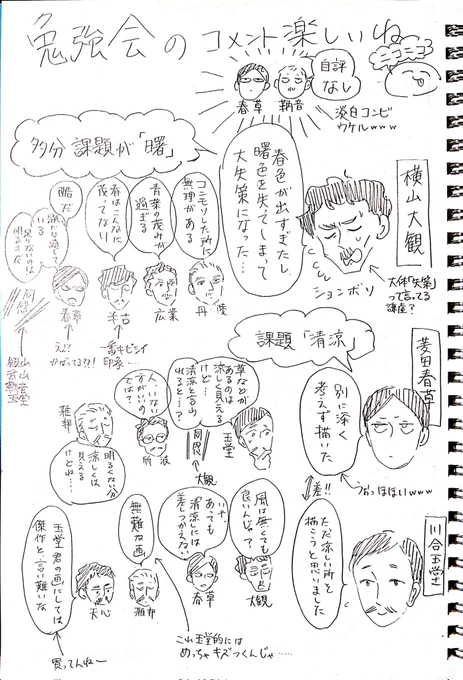 勉強会のコメント楽しいね
ニコニコ
自評
なし
春草
鞆音
淡白コンビ
ウケルwww
多分 課題が「曙」
春色が出すぎたし
曙色を失てしまて
大失策になった…
横山大観
ションボリ
大体「失策」
って言ってる
講座?
コンモリした所に
無理がある
青葉の茂みが
過ぎる
春はこんなに
茂ってない
酷だ
春草
半古
広業
丹陵
え??
かばってる??!
一番キビシイ
印象…
観山
玉堂
課題「清涼」
別に深く
考えず描いた
菱田春草
うわっほほいwww
差!!
ただ涼しい所を
描こうと思いました
川合玉堂
草などが
あるのは
涼しく見える
けど…
清涼と言われると…?
玉堂
同感
大観
人いない
方がいいの
では?
雅邦
明るくない分
涼しくは
見える
けどね…
風は無くても
良いんじゃ?
大観
いや、
あっても
清涼には
差つかえない
春草
無難な画
雅邦
玉堂君の画にしては
傑作と言い難いな
天心
買ってんねー
これ玉堂的には
めっちゃキズつくんじゃ……